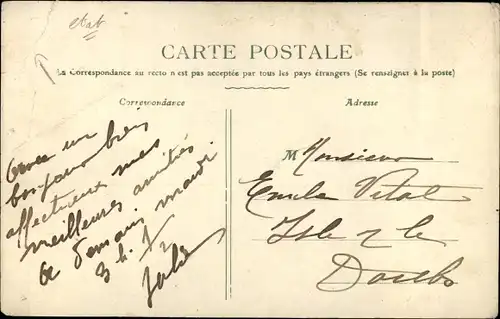 état
CARTE POSTALE
La Correspondance au recto n'est pas acceptée par tous les pays étrangers (Se renseigner à la poste)
Correspondance
Avec un
bonjour bien
affectueux mes
meilleures amitiés
A demain mardi
3 h. ½
Adresse
M Monsieur
Emile Vital
Isle s le
Doubs